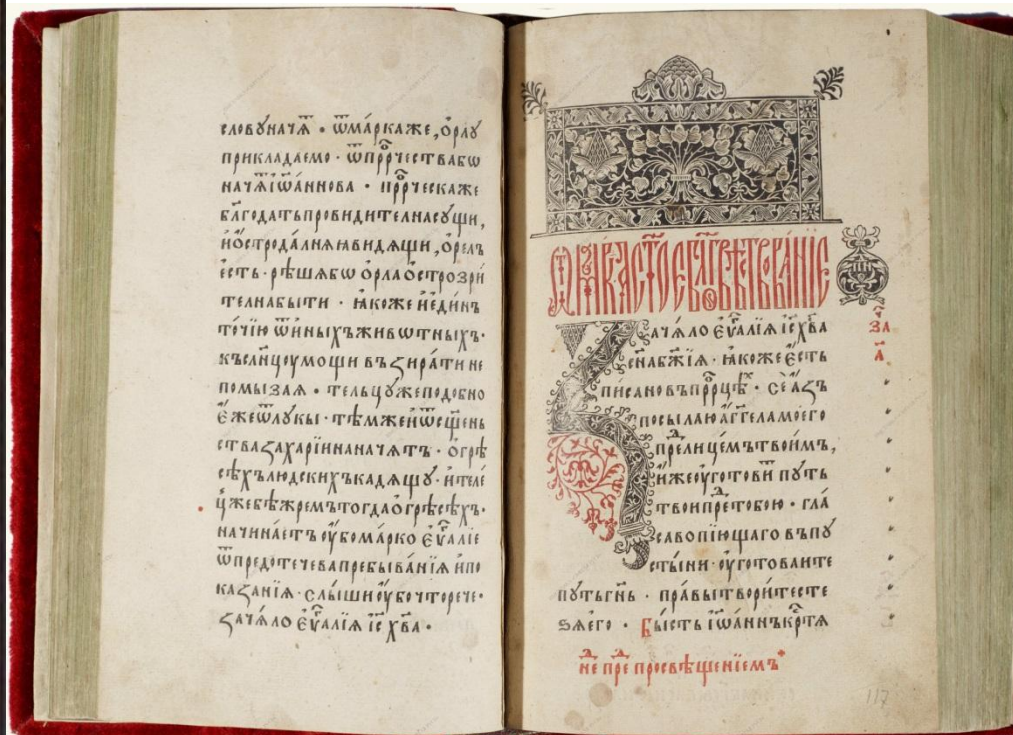 словꙋначѧ̑ · ѿма́ркаже, ѻ҆рлꙋ
прикладаемо · ѿпрⷪ҇рчествабѡ
начѧ̑ і҆ѡ́аннова · прⷪ҇рческаже
бл҃годатьпровидителнасꙋщи,
и҆ѻ҆строда́лнѧꙗвидѧщи, ѻ҆ре́лъ
є҆сть · рѣшѧбѡ ѻ҆рлаѻ҆строзрі
телнабыти · ꙗкожеи҆є҆ди́нъ
то́чїю ѿи҆ныхъживѡтныхъ ·
къслн҃цꙋмощи въꙁира́ти не
помыꙁаѧ · тельцꙋжеподобно
є҆́жеѿлꙋкы · тѣ́мжеи҆ѿсщ҃енъ
стваꙁаха́рїинаначѧтъ · ѻ҆грѣ
сѣхълюдскихъкадѧщꙋ · и҆теле́
цъжебѣжремътогдаѻ҆грѣсѣхъ ·
начина́етъоу҆бома́рко є҆ѵⷢ҇а́лїе
ѿпредотечевапребыва́нїѧ и҆по
каꙁа́нїѧ · слышиоу҆бочторече ·
ꙁачѧ́ло є҆ѵⷢ҇а́лїѧ і҆с҃ х҃ва ·
ꙁачѧ́ло є҆ѵⷢ҇а́лїѧ і҆с҃ х҃ва
сн҃абж҃їѧ · ꙗкоже є҆́сть
писановъпрⷪ҇рцѣ · се а҆́ꙁъ
посылаю а҆́гг҃еламоего
преⷣлице́мътвои́мъ,
и҆́жеоу҆готовиⷮ пꙋть
твоипреⷣтобою · гла́
савопїю́щаго въпꙋ
сты́ни · оу҆готоваите
пꙋтьгн҃ь · пра́вытвори́тестє
ꙁѧего · Бы́сть і҆ѡа́ннъкрⷭ҇тѧ
ꙁа
а҃
не преⷣ просвѣще́нїемъ
117